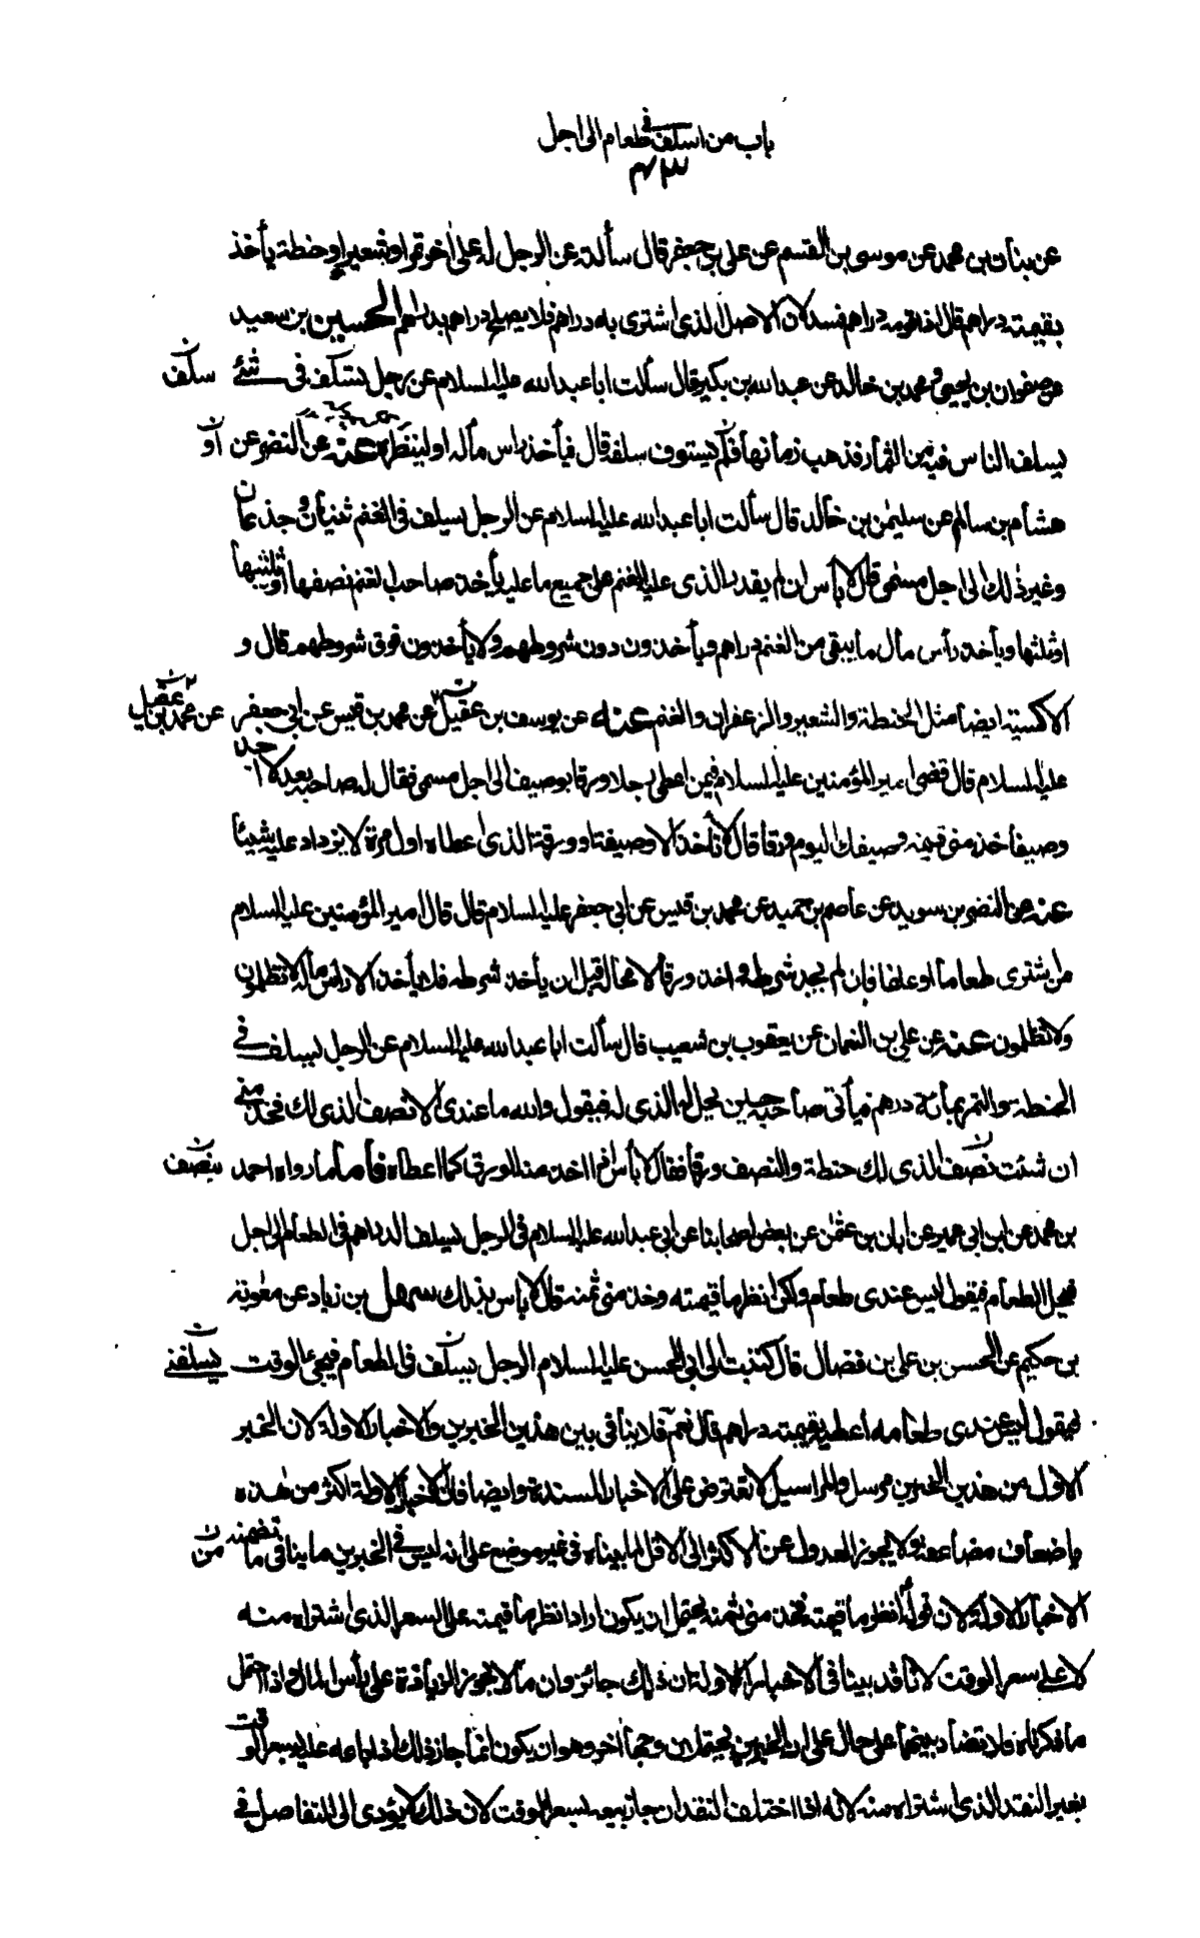 باب من اسلف في طعام الى اجل
٤٣
عن بنان بن محمد عن موسى بن القسم عن علي بن جعفر قال سألته عن الرجل له على اخر تمر او شعير او حنطة يأخذ
بقيمته دراهم قال اذا قومه دراهم فسد لان الاصل الذى اشترى به دراهم فلا يصلح دراهم بدراهم الحسين بن سعيد
عن صفوان بن يحيى ومحمد بن خالد عن عبد الله بن بكير قال سألت ابا عبد الله عليه السلام عن رجل يسلف في شئ سلف
يسلف الناس فيه من الثمار فذهب زمانها فلم يستوف سلفه قال فيأخذ راس ماله او لينظره عنه عن النضر عن او
هشام بن سالم عن سليمن بن خالد قال سألت ابا عبد الله عليه السلام عن الرجل يسلف في الغنم ثنيان وجذعان
وغير ذلك الى اجل مسمى قال لا بأس ان لم يقدر الذى عليه الغنم على جميع ما عليه يأخذ صاحب الغنم نصفها او ثلثيها
او ثلثها ويأخذ رأس مال ما بقى من الغنم دراهم ويأخذون دون شروطهم ولا يأخذون فوق شروطهم قال و
الاكسية ايضا مثل الحنطة والشعير والزعفران والغنم عنه عن يوسف بن عقيل عن محمد بن قيس عن ابي جعفر عن محمد بن عقيل
عليه السلام قال قضى امير المؤمنين عليه السلام فيمن اعطى رجلا ورقا بوصيف الى اجل مسمى فقال له صاحبه بعد لا اجد
وصيفا خذ منى قيمة وصيفك اليوم ورقا قال لا تأخذ الا وصيفه او ورقه الذى اعطاه اول مرة لا يزداد عليه شيئا
عنه عن النضر بن سويد عن عاصم بن حميد عن محمد بن قيس عن ابي جعفر عليه السلام قال قال امير المؤمنين عليه السلام
من اشترى طعاما او علفا فان لم يجد شرطه واخذ ورقا لا محالة قبل ان يأخذ شرطه فلا يأخذ الا رأس ماله لا تظلمون
ولا تظلمون عنه عن علي بن النعمان عن يعقوب بن شعيب قال سألت ابا عبد الله عليه السلام عن الرجل يسلف في
الحنطة والتمر بمأة درهم فيأتى صاحبه حين يحل له الذى له فيقول والله ما عندى الا نصف الذى لك فخذ منى
ان شئت نصف الذى لك حنطة والنصف ورقا فقال لا بأس اذا اخذ منه الورق كما اعطاه فأما ما رواه احمد بنصف
بن محمد عن ابن ابي عمير عن ابان بن عثمن عن بعض اصحابنا عن ابي عبد الله عليه السلام في الرجل يسلف الدراهم في الطعام الى اجل
فيحل الطعام فيقول ليس عندى طعام ولكن انظر ما قيمته وخذ منى ثمنه قال لا بأس بذلك سهل بن زياد عن معوية
بن حكيم عن الحسن بن على بن فضال قال كتبت الى ابي الحسن عليه السلام الرجل يسلف في الطعام فيجئ الوقت يسلفنى
فيقول ليس عندى طعام اعطيه بقيمته دراهم قال نعم فلا ينافى بين هذين الخبرين والاخبار الاولة لان الخبر
الاول من هذين الخبرين مرسل والمراسيل لا تعترض على الاخبار المسندة وايضا فان الاخبار الاولة اكثر من هذه
باضعاف مضاعفة ولا يجوز العدول عن الاكثر الى الاقل لما بيناه في غير موضع على انه ليس في الخبرين ما ينافى ما تضمنه من
الاخبار الاولة لان قوله انظر ما قيمته فخذ منى ثمنه يحتمل ان يكون اراد انظر ما قيمته على السعر الذى اشتراه منه
لا على سعر الوقت لانا قد بينا في الاخبار الاولة ان ذلك جائز وان ما لا يجوز الزيادة على رأس المال واذا احتمل
ما ذكرناه فلا تضاد بينهما على حال على ان الخبرين يحتملان وجها اخر وهو ان يكون انما جاز ذلك اذا باعه عليه بسعر الوقت
بغير النقد الذى اشتراه منه لانه اذا اختلف النقدان جاز بيعه بسعر الوقت لان ذلك لا يؤدى الى التفاضل في